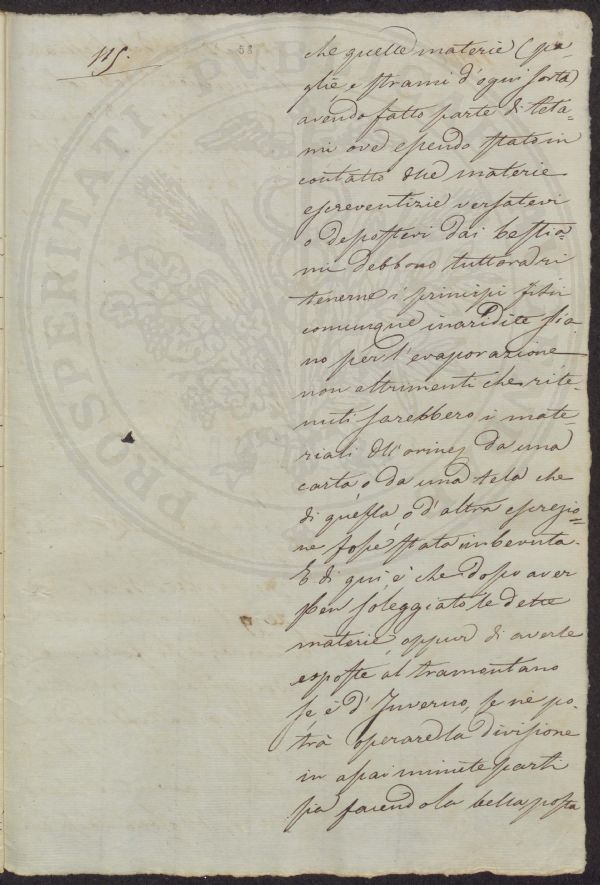 115.
58
che quelle materie (pa-
glie e strami d'ogni sorta)
avendo fatto parte di leta-
mi ove essendo stato in
contatto dlle materie
escreventizie versatevi
o depostevi dai bestia-
mi debbono tuttora ri
tenerne i principj fissi
comunque inaridite sia
no per l'evaporazione
non altrimenti che rite-
nuti sarebbero i mate-
riali dll'orine, da una
carta o da una tela che
di questa o d'altra escrezio-
ne fosse stata imbevuta.
E di qui è che dopo aver
ben soleggiato le dette
materie, oppur di averle
esposte al tramontano
se è d'Inverno, se ne po-
trà operare la divisione
in assai minute parti
sia facendola bella posta
PROSPERITATI PVB